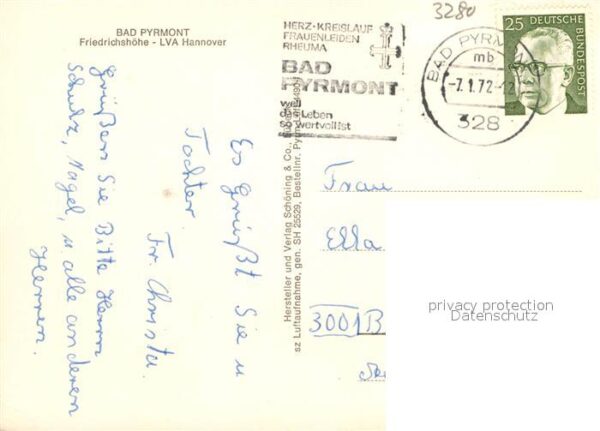 BAD PYRMONT
Friedrichshöhe - LVA Hannover
3280
HERZ-KREISLAUF
FRAUENLEIDEN
RHEUMA
BAD
PYRMONT
weil
das Leben
so wertvoll ist
BAD PYRMONT
mb
-7.1.72-12
328
25 DEUTSCHE
BUNDESPOST
Es grüßt Sie u
Tochter.
Fr. Christa
Grüßen Sie Bitte Herrn
Schulz, Nagel, u. alle anderen
Herren.
Hersteller und Verlag Schöning & Co.,
sz Luftaufnahme, gen. SH 25529, Bestellnr. Pyrm
Frau
Ella
3001 B
privacy protection
Datenschutz